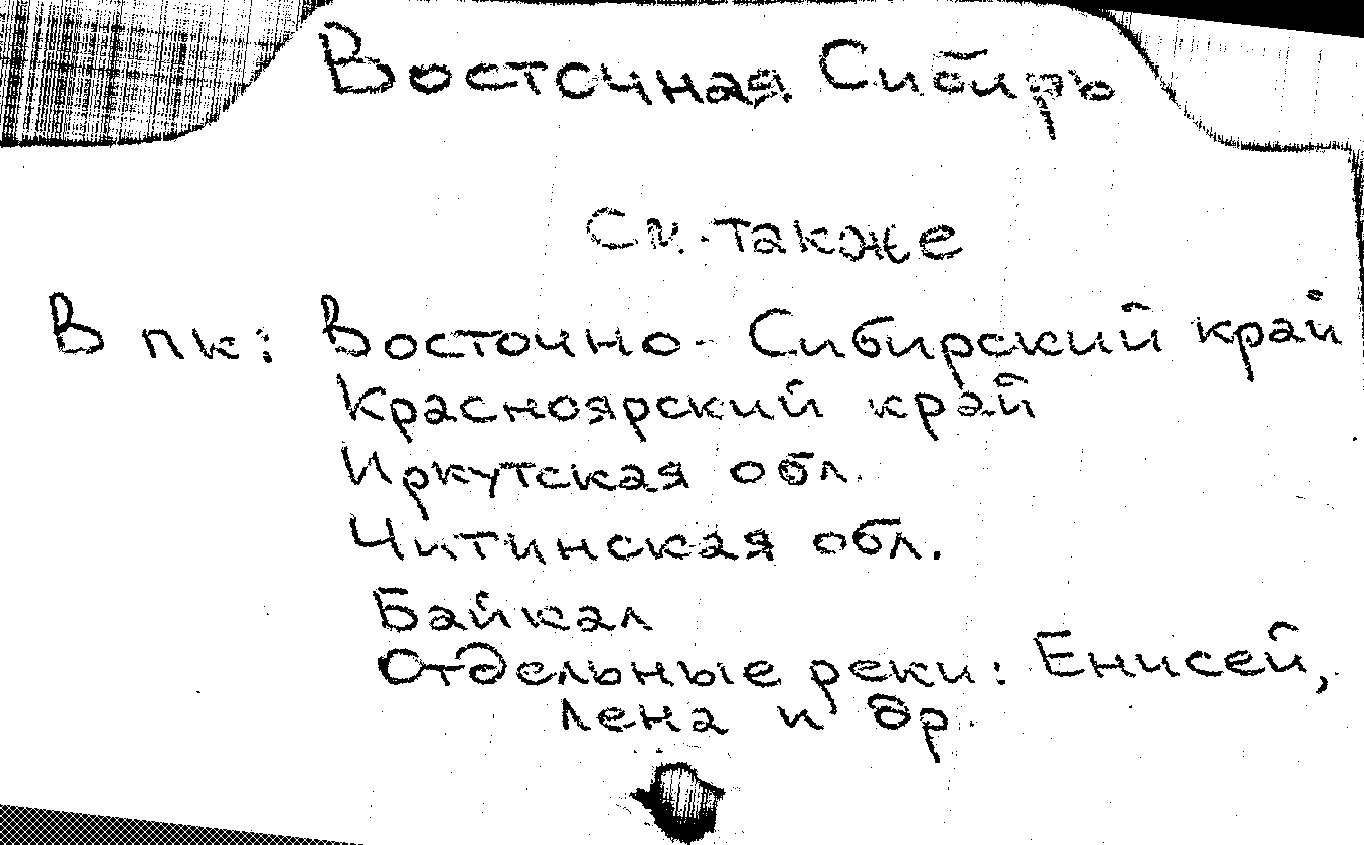 Восточная Сибирь
См. также
В пк: Восточно-Сибирский край
Красноярский край
Иркутская обл.
Читинская обл.
Байкал
Отдельные реки: Енисей,
Лена и др.